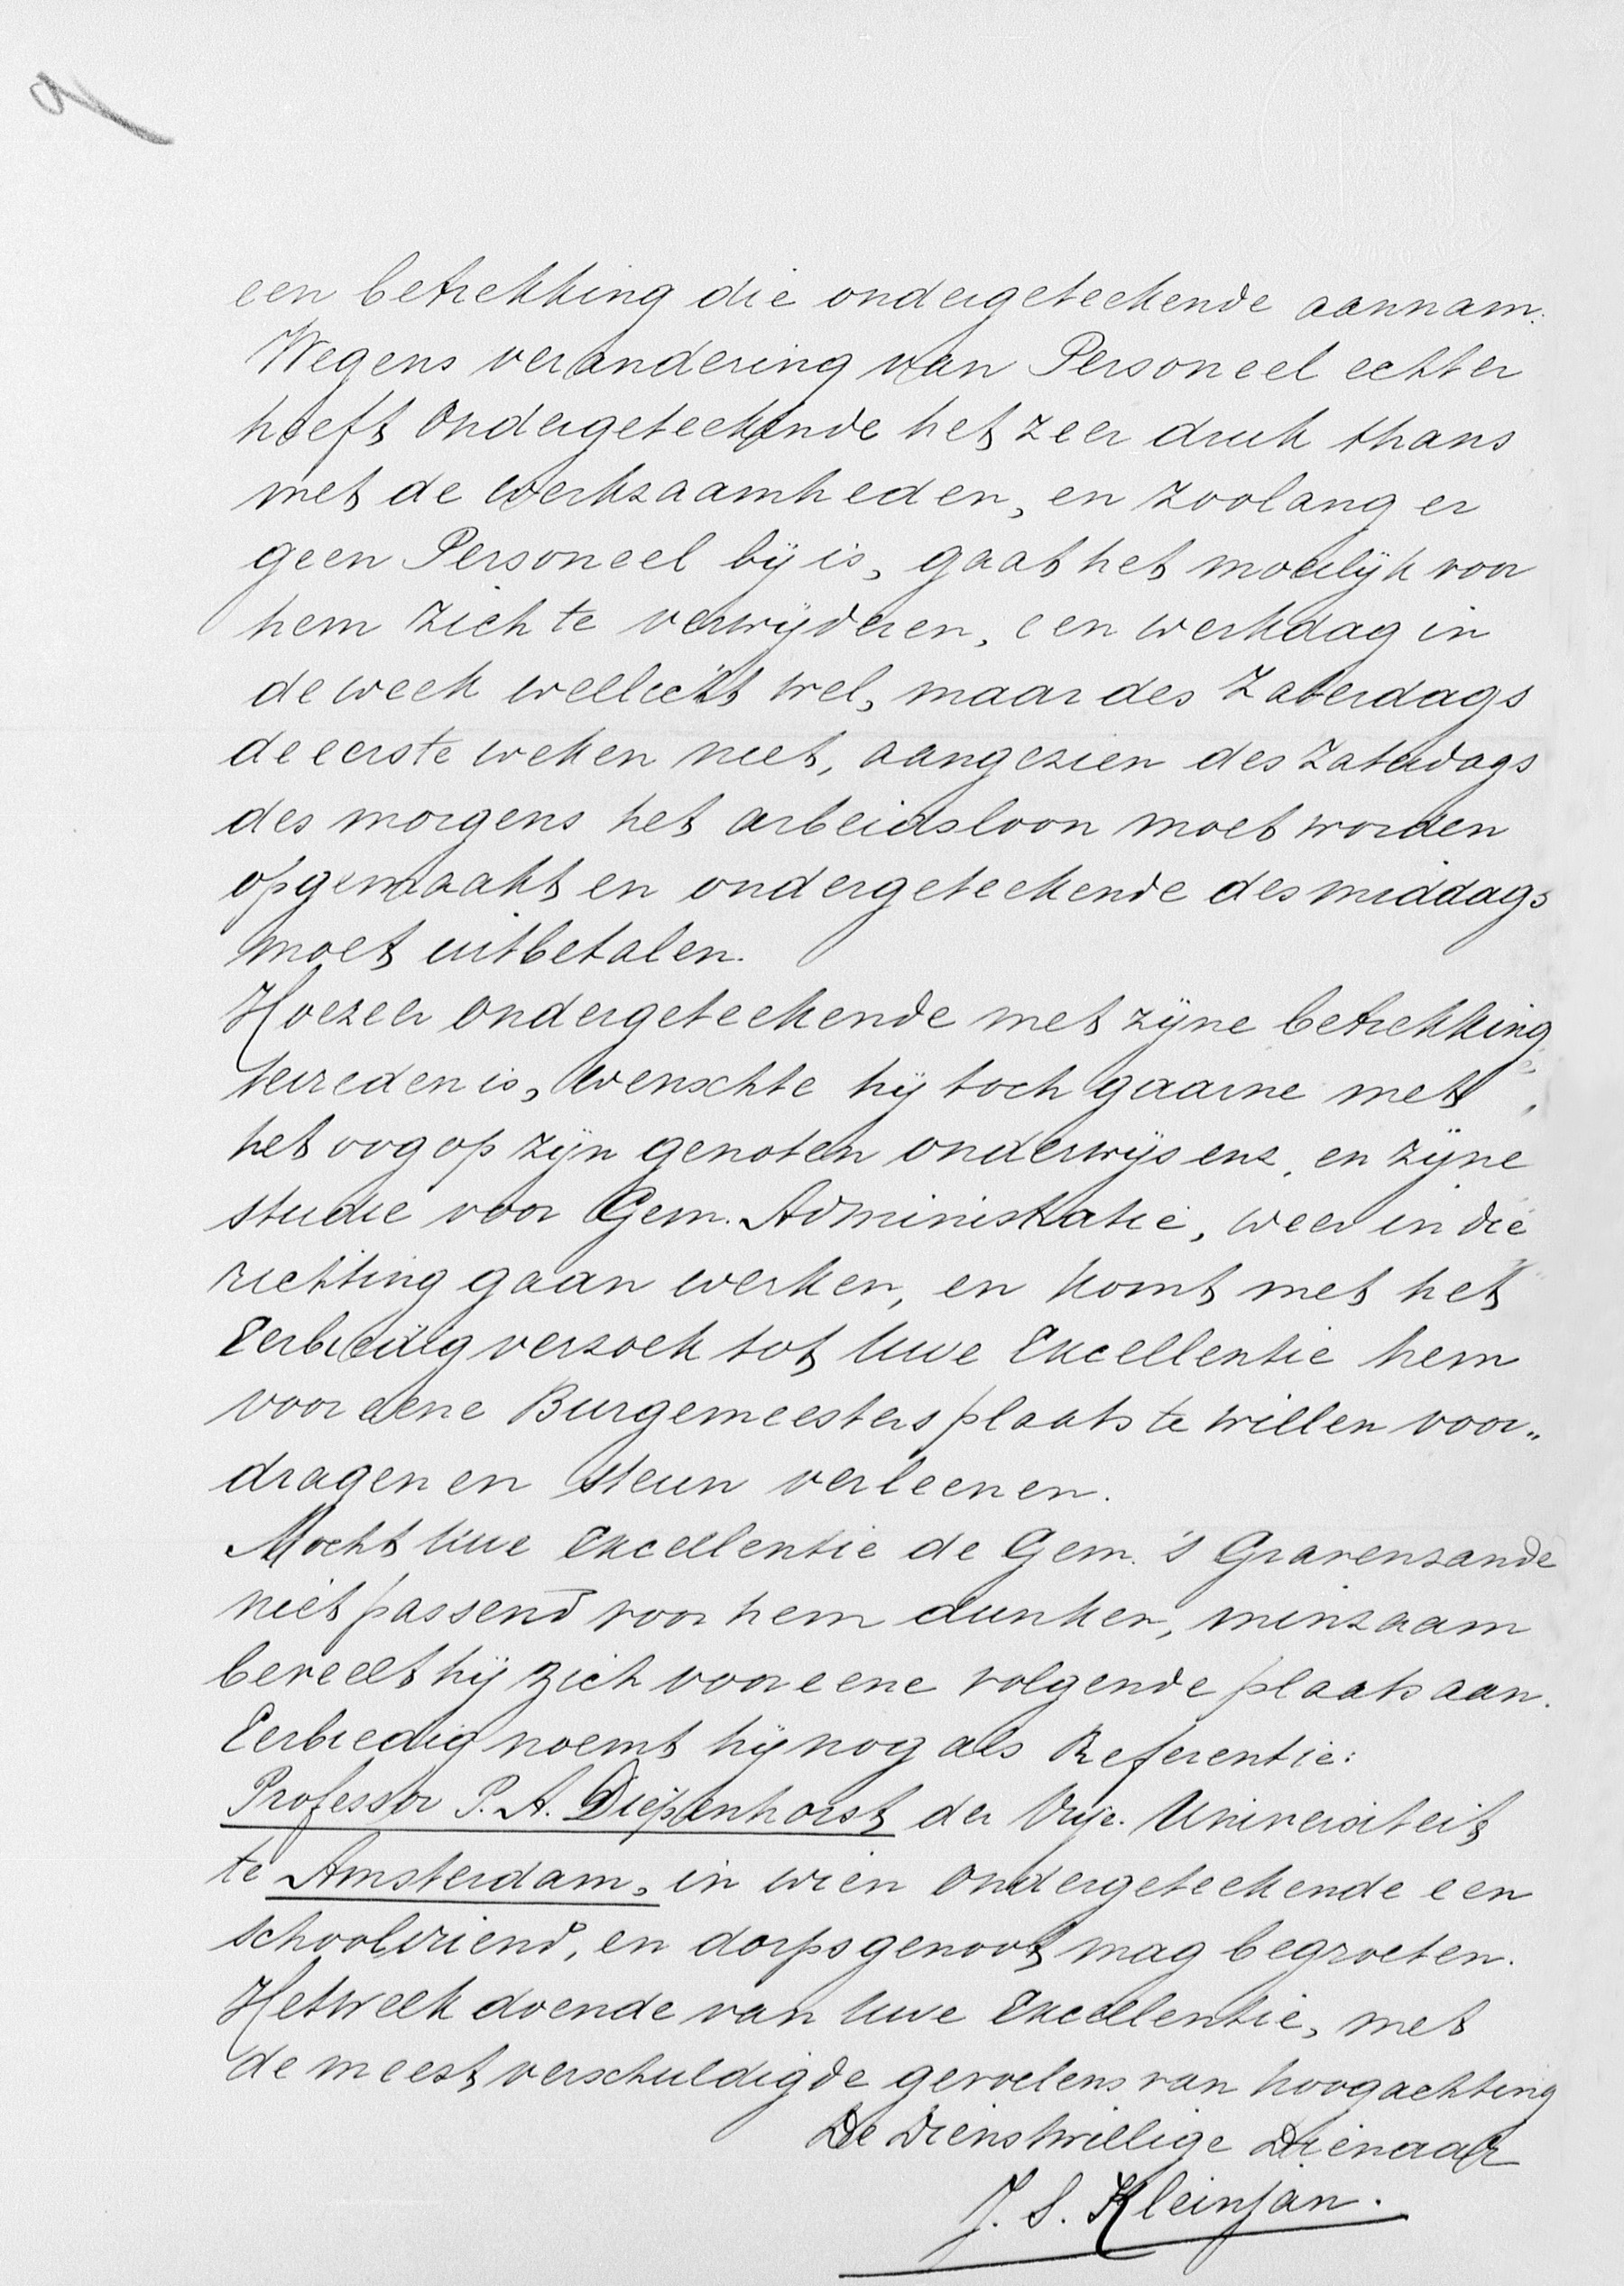 een betrekking die ondergeteekende aannam.
Wegens verandering van Personeel echter
heeft Ondergeteekende het zeer druk thans
met de werkzaamheden, en zoolang er
geen Personeel bij is, gaat het moeilijk voor
hem zich te verwijderen, een werkdag in
de week wellicht wel, maar des Zaterdags
de eerste weken niet, aangezien des Zaterdags
des morgens het arbeidsloon moet worden
opgemaakt en ondergeteekende des middags
moet uitbetalen.
Hoezeer Ondergeteekende met zijne betrekking
tevreden is, wenschte hij toch gaarne met
het oog op zijn genoten onderwijs enz. en zijne
studie voor Gem. Administratie, weer in die
richting gaan werken, en komt met het
Eerbiedig verzoek tot Uwe Excellentie hem
voor eene Burgemeestersplaats te willen voor„
dragen en steun verleenen.
Mocht Uwe Excellentie de Gem. 's Gravenzande
niet passend voor hem dunken, minzaam
beveelt hij zich voor eene volgende plaats aan.
Eerbiedig noemt hij nog als Referentie:
Professor P. A. Diepenhorst der Vrije. Universiteit
te Amsterdam, in wien Ondergeteekende een
schoolvriend, en dorpsgenoot mag begroeten.
Hetwelk doende van Uwe Excellentie, met
de meest verschuldigde gevoelens van hoogachting
De Dienstwillige Dienaar
J. S. Kleinjan.